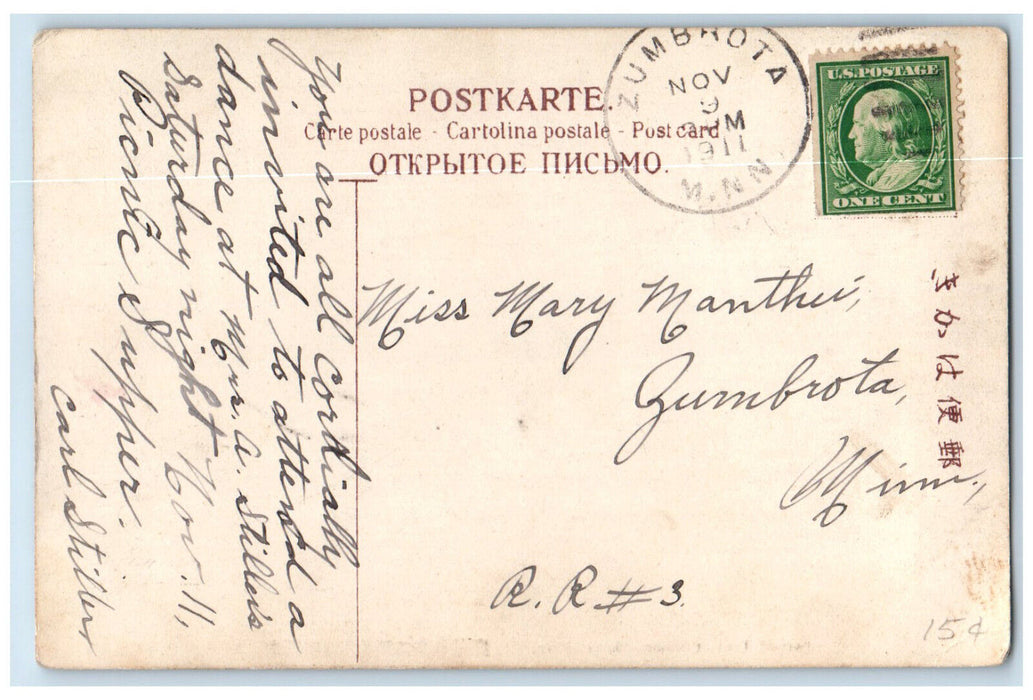 POSTKARTE.
Carte postale - Cartolina postale - Post card
ОТКРЫТОЕ ПИСЬМО.
ZUMBROTA
NOV
9
PM
1911
MINN.
U.S. POSTAGE
ONE CENT
きかは便郵
You are all cordially
invited to attend a
dance at Mr. A. Stiller's
Saturday night Nov. 11,
Picnic supper.
Carl Stiller
Miss Mary Manthei,
Zumbrota,
Minn,
R. R #3.
15¢